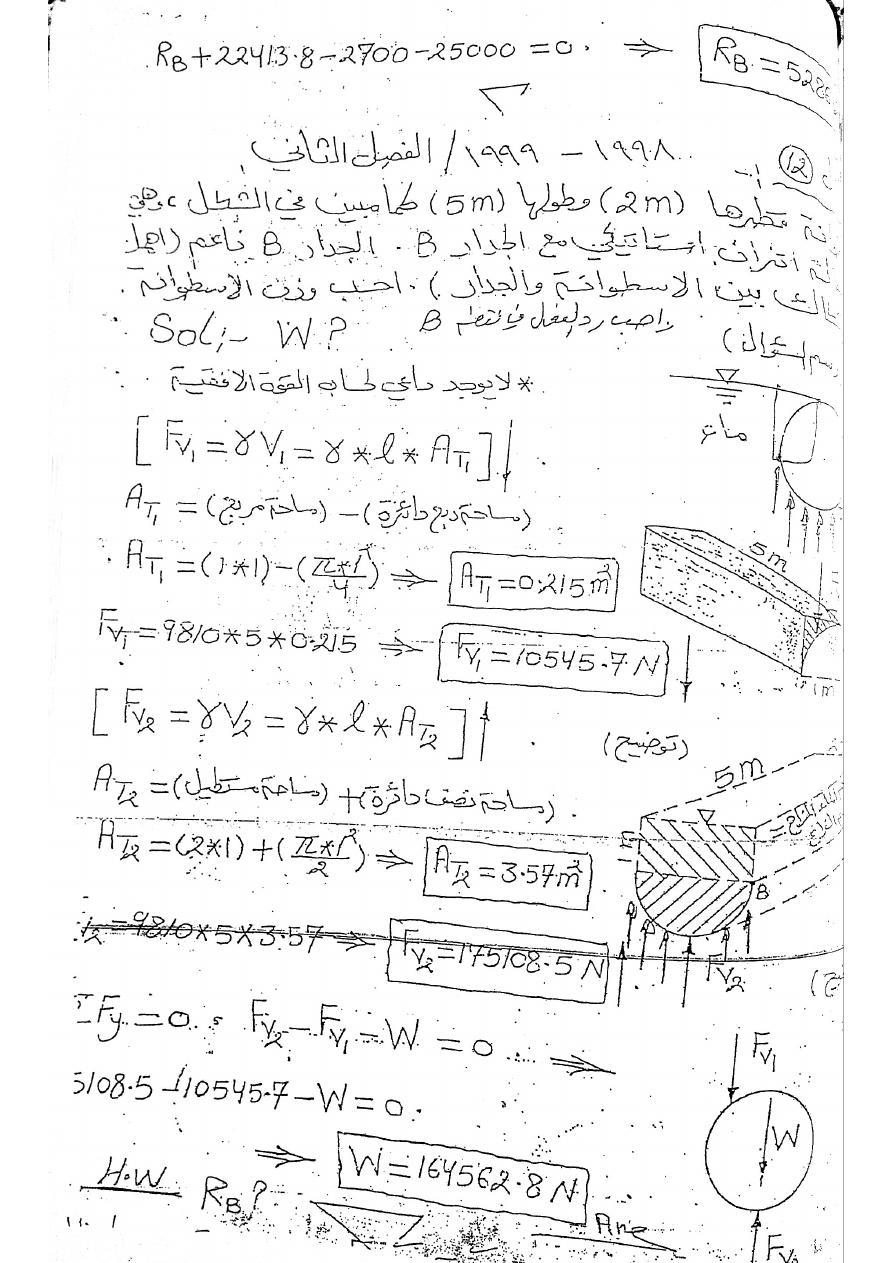 R_B + 22413.8 - 2700 - 25000 = 0. ⇒ R_B = 528
(12) ١٩٩٨ - ١٩٩٩ / الفصل الثاني
قطرها (2m) وطولها (5m) كما مبين في الشكل، وهي
اتزان استاتيكي مع الجدار B. الجدار B ناعم (اهمل
بين الاسطوانة والجدار). احسب وزن الاسطوانة.
واحسب رد الفعل في نقطة B
Sol:- W?
* لا يوجد داعي لحساب القوة الافقية
ماء
[F_V1 = γV_1 = γ * l * A_T1] ↓
A_T1 = (مساحة مربع) - (مساحة ربع دائرة)
A_T1 = (1*1) - (π*1²/4) ⇒ A_T1 = 0.215m²
5m
1m
F_V1 = 9810*5*0.215 ⇒ F_V1 = 10545.7 N ↓
[F_V2 = γV_2 = γ * l * A_T2] ↑
(توضيح)
A_T2 = (مساحة مستطيل) + (مساحة نصف دائرة).
5m
A_T2 = (2*1) + (π*1²/2) ⇒ A_T2 = 3.57m²
B
V_2 = 9810*5*3.57 ⇒ F_V2 = 175108.5 N
F_V2
ΣFy = 0. F_V2 - F_V1 - W = 0 ⇒
F_V1
5108.5 - 10545.7 - W = 0.
W
⇒ W = 164562.8 N
H.W R_B?
Ans
F_V2